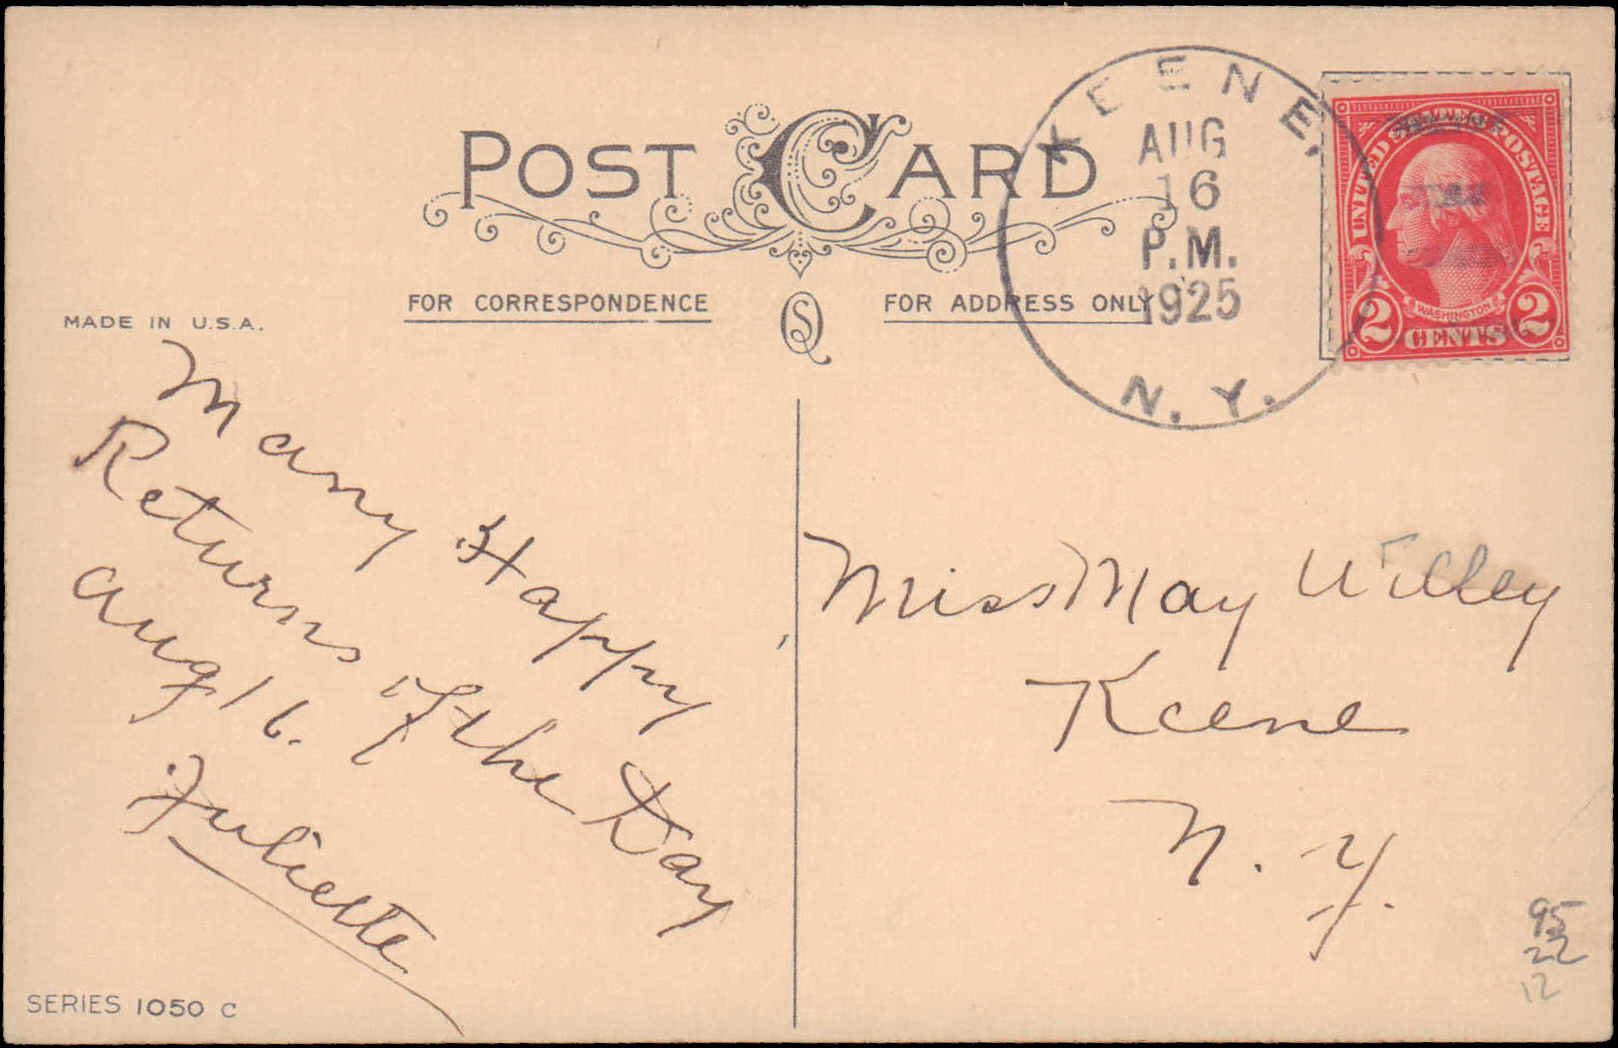 POST CARD
FOR CORRESPONDENCE
FOR ADDRESS ONLY
MADE IN U.S.A.
SQ
KEENE.
AUG
16
P.M.
1925
N.Y.
UNITED STATES POSTAGE
WASHINGTON
2 CENTS 2
Many Happy
Returns of the Day
Aug 16.
Juliette
Miss May Willey
Keene
N. Y.
SERIES 1050 C
95
22
12